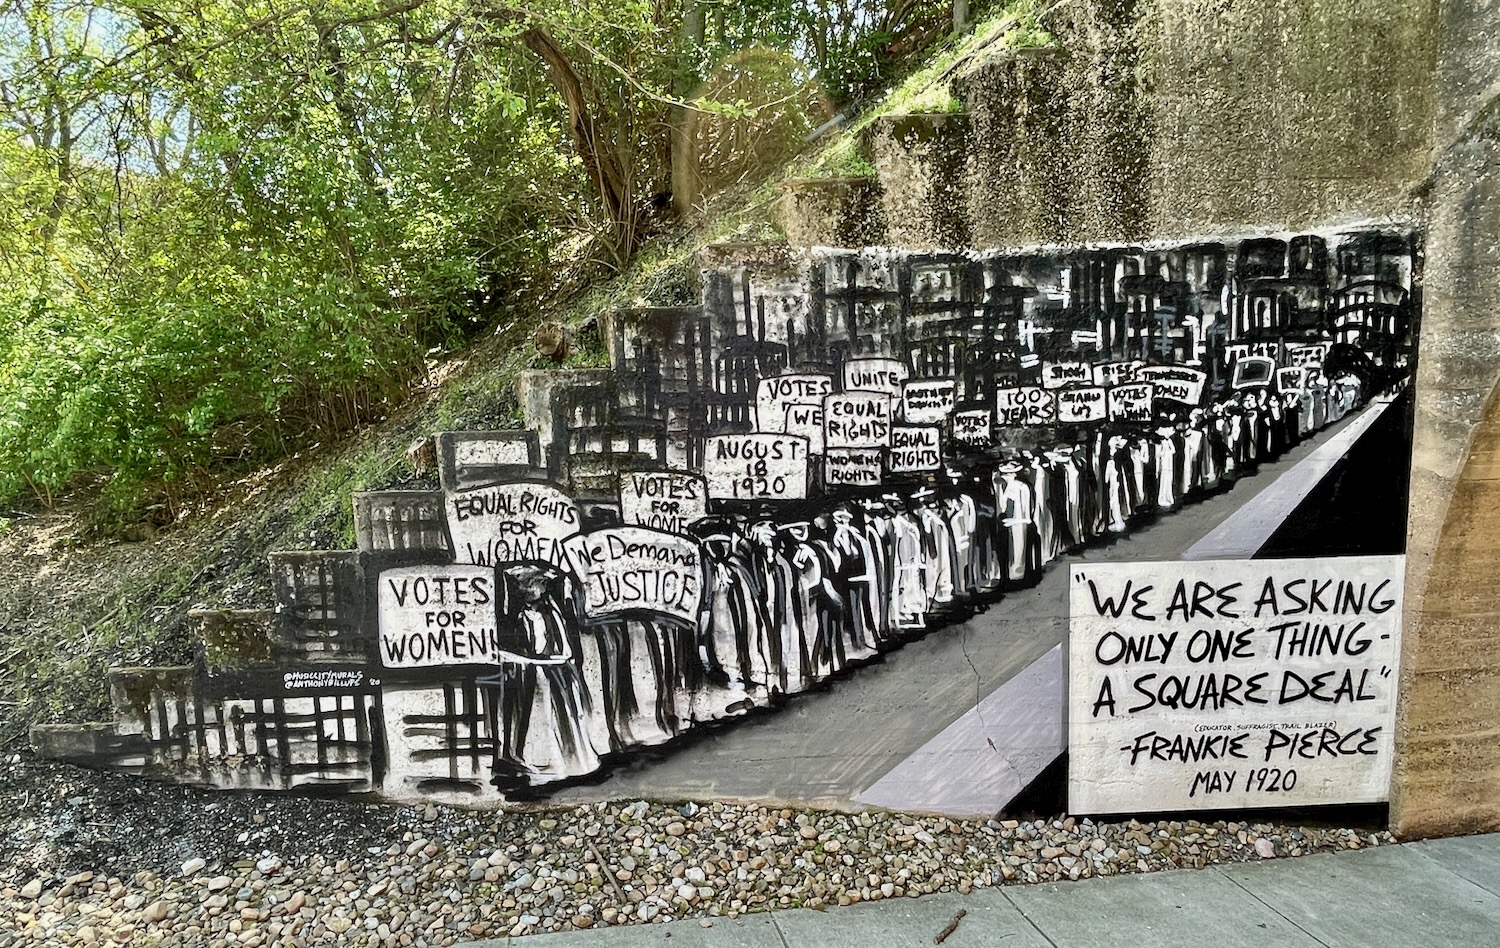 VOTES
UNITE
WE
EQUAL
RIGHTS
100
YEARS
STAND
UP
VOTES
RISE
TENNESSEE
WOMEN
VOTES
AUGUST
18
1920
WOMENS
RIGHTS
EQUAL
RIGHTS
EQUAL RIGHTS
FOR
WOMEN
VOTES
FOR
WOME
We Demand
JUSTICE
VOTES
FOR
WOMEN!
@MUSICCITYMURALS
@ANTHONYBILLUPS '20
"WE ARE ASKING
ONLY ONE THING -
A SQUARE DEAL"
(EDUCATOR, SUFFRAGIST, TRAIL BLAZER)
-FRANKIE PIERCE
MAY 1920